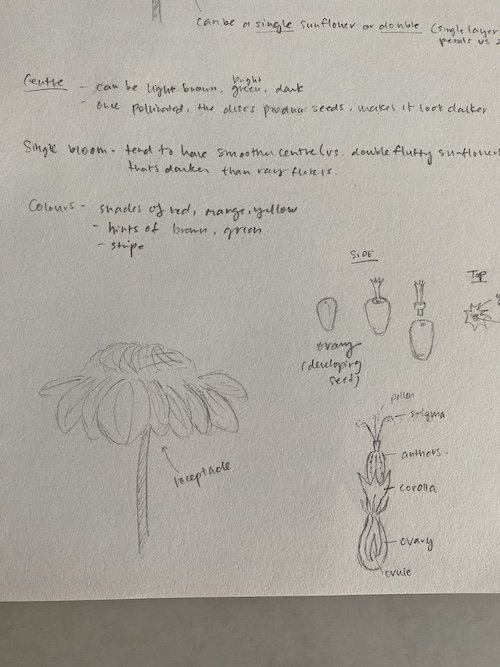 can be a single sunflower or double (single layer
petals vs
Centre - can be light brown, bright green, dark
- once pollinated, the discs produce seeds, makes it look darker
Single bloom - tend to have smoother centre (vs. double fluffy sunflower
that's darker than ray florets.
Colours - shades of red, orange, yellow
- hints of brown, green
- stripe
SIDE
TOP
ovary
(developing
seed)
pollen
stigma
anthers
corolla
receptacle
ovary
ovule